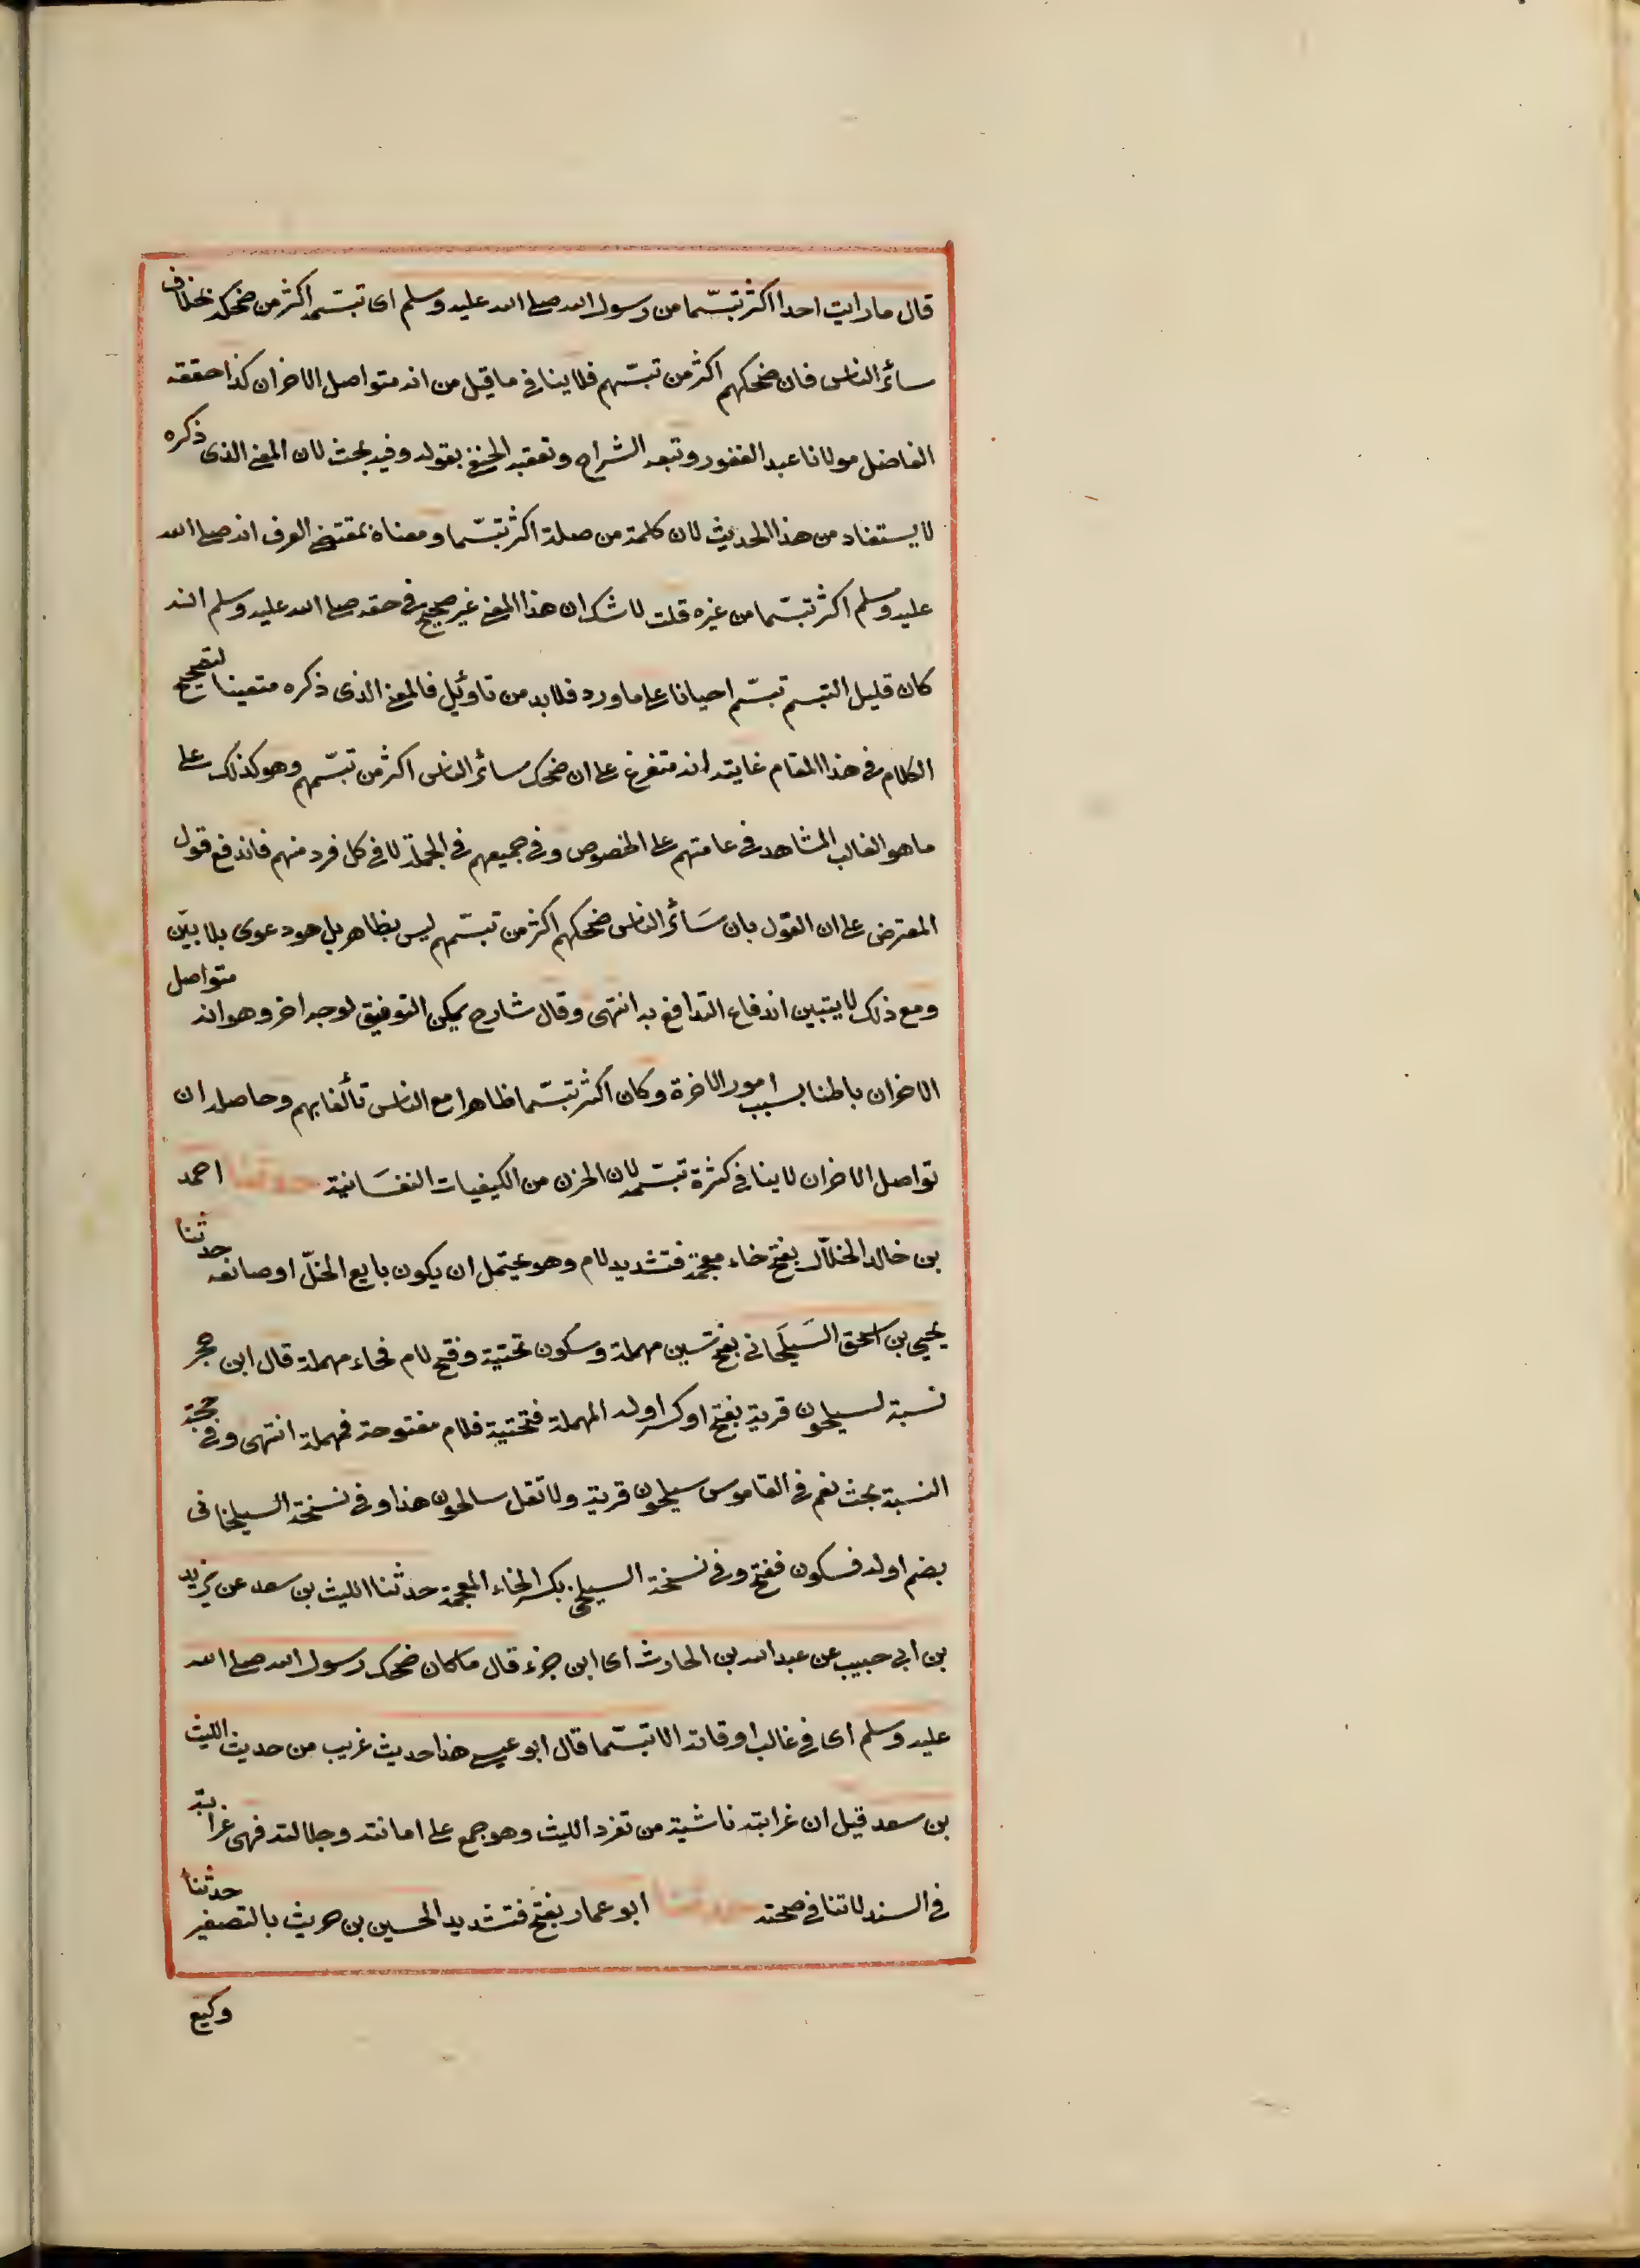 قال ما رايت احدا اكثر تبسّما من رسول الله صلى الله عليه وسلم اى تبسّمه اكثر من ضحكه بخلاف
سائر الناس فان ضحكهم اكثر من تبسّمهم فلا ينافى ما قيل من انه متواصل الاحزان كذا حققه
الفاضل مولانا عبد الغفور وتبعه الشراح وتعقبه الحنفى بقوله وفيه بحث لان المعنى الذى ذكره
لا يستفاد من هذا الحديث لان كلمة من صلة اكثر تبسّما ومعناه بمقتضى العرف انه صلى الله
عليه وسلم اكثر تبسّما من غيره قلت لا شك ان هذا المعنى غير صحيح فى حقه صلى الله عليه وسلم لانه
كان قليل التبسم تبسّم احيانا على ما ورد فلا بد من تاويل فالمعنى الذى ذكره متعينا لتصحيح
الكلام فى هذا المقام غايته انه متفرع على ان ضحك سائر الناس اكثر من تبسّمهم وهو كذلك على
ما هو الغالب المشاهد فى عامتهم على الخصوص وفى جميعهم فى الجملة لا فى كل فرد منهم فاندفع قول
المعترض على ان القول بان سَائر الناس ضحكهم اكثر من تبسّمهم ليس بظاهر بل هو دعوى بلا بيّن
ومع ذلك لا يتبين اندفاع التدافع به انتهى وقال شارح يمكن التوفيق لوجه اخر وهو انه متواصل
الاحزان باطنا بسبب امور الاخرة وكان اكثر تبسّما ظاهرا مع الناس تألفا بهم وحاصله ان
تواصل الاحزان لا ينافى كثرة تبسّمه لان الحزن من الكيفيات النفسَانية حدثنا احمد
بن خالد الخلاّل بفتح خاء معجمة فتشديد لام وهو يحتمل ان يكون بايع الخلّ او صانعه حدثنا
يحيى بن اسحق السَيلَحانى بفتح سين مهملة وسكون تحتية وفتح لام فحاء مهملة قال ابن حجر
نسبة لسيلحون قرية بفتح او كسر اوله المهملة فتحتية فلام مفتوحة فمهملة انتهى وفى صحة
النسبة بحث نعم فى القاموس سيلحون قرية ولا تقل سالحون هذا وفى نسخة السيلخانى
بضم اوله فسكون ففتح وفى نسخة السيلخى بكسر الخاء المعجمة حدثنا الليث بن سعد عن يزيد
بن ابى حبيب عن عبد الله بن الحارث اى ابن جزء قال ما كان ضحك رسول الله صلى الله
عليه وسلم اى فى غالب اوقاته الا تبسّما قال ابو عيسى هذا حديث غريب من حديث الليث
بن سعد قيل ان غرابته ناشية من تفرد الليث وهو جمع على امانته وجلالته فهى غرابة
فى السند لا تنافى صحته حدثنا ابو عمار بفتح فتشديد الحسين بن حريث بالتصغير حدثنا
وكيع